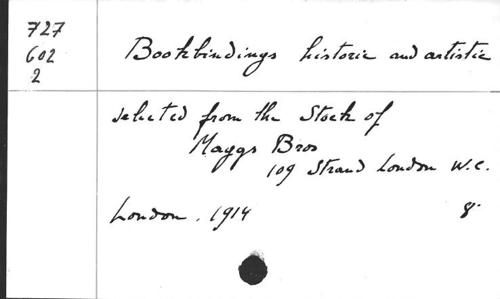 727
602
2
Bookbindings historic and artistic
selected from the Stock of
Maggs Bros
109 Strand London W.C.
London. 1914 8°